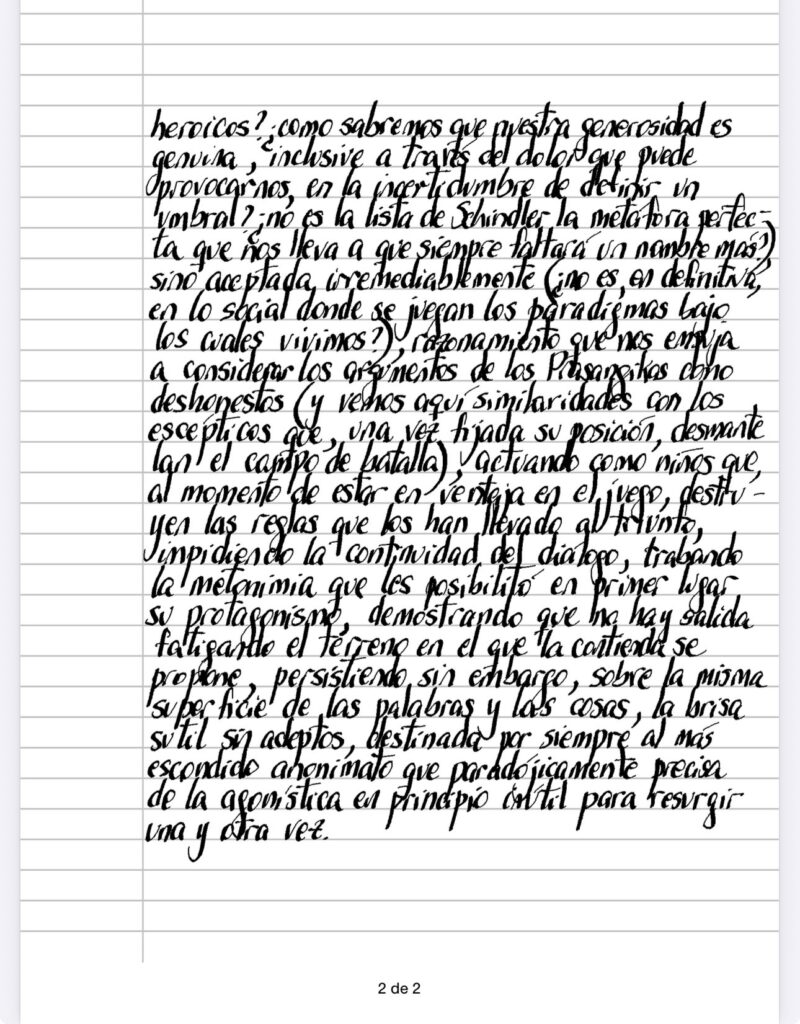 heroicos? ¿como sabremos que nuestra generosidad es
genuina, inclusive a través del dolor que puede
provocarnos, en la incertidumbre de definir un
umbral? ¿no es la lista de Schindler la metáfora perfec-
ta que nos lleva a que siempre faltará un nombre más?)
sino aceptada irremediablemente (¿no es, en definitiva,
en lo social donde se juegan los paradigmas bajo
los cuales vivimos?), razonamiento que nos empuja
a considerar los argumentos de los Prasangikas como
deshonestos (y vemos aquí similaridades con los
escépticos que, una vez fijada su posición, desmante
lan el campo de batalla), actuando como niños que,
al momento de estar en ventaja en el juego, destitu-
yen las reglas que los han llevado al triunfo,
impidiendo la continuidad del diálogo, trabando
la metonimia que les posibilitó en primer lugar
su protagonismo, demostrando que no hay salida
fatigando el terreno en el que la contienda se
propone, persistiendo, sin embargo, sobre la misma
superficie de las palabras y las cosas, la brisa
sutil sin adeptos, destinada por siempre al más
escondido anonimato que paradójicamente precisa
de la agonística en principio inútil para resurgir
una y otra vez.
2 de 2